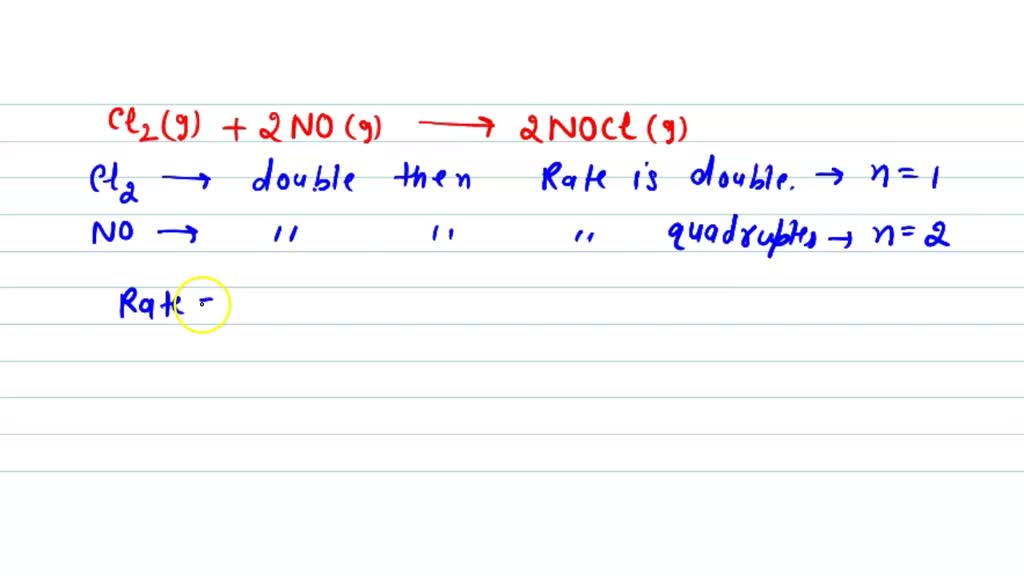 Cl2(g) + 2NO(g) → 2NOCl(g)
Cl2 → double then Rate is double. → n = 1
NO → " " " quadruples → n = 2
Rate -